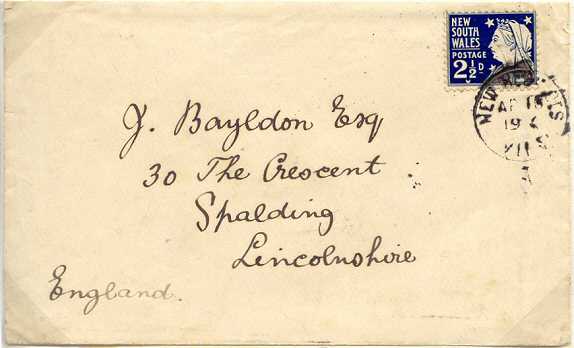 NEW
SOUTH
WALES
POSTAGE
2½D
NEW
AP 18
19
J. Bayldon Esq
30 The Crescent
Spalding
Lincolnshire
England.